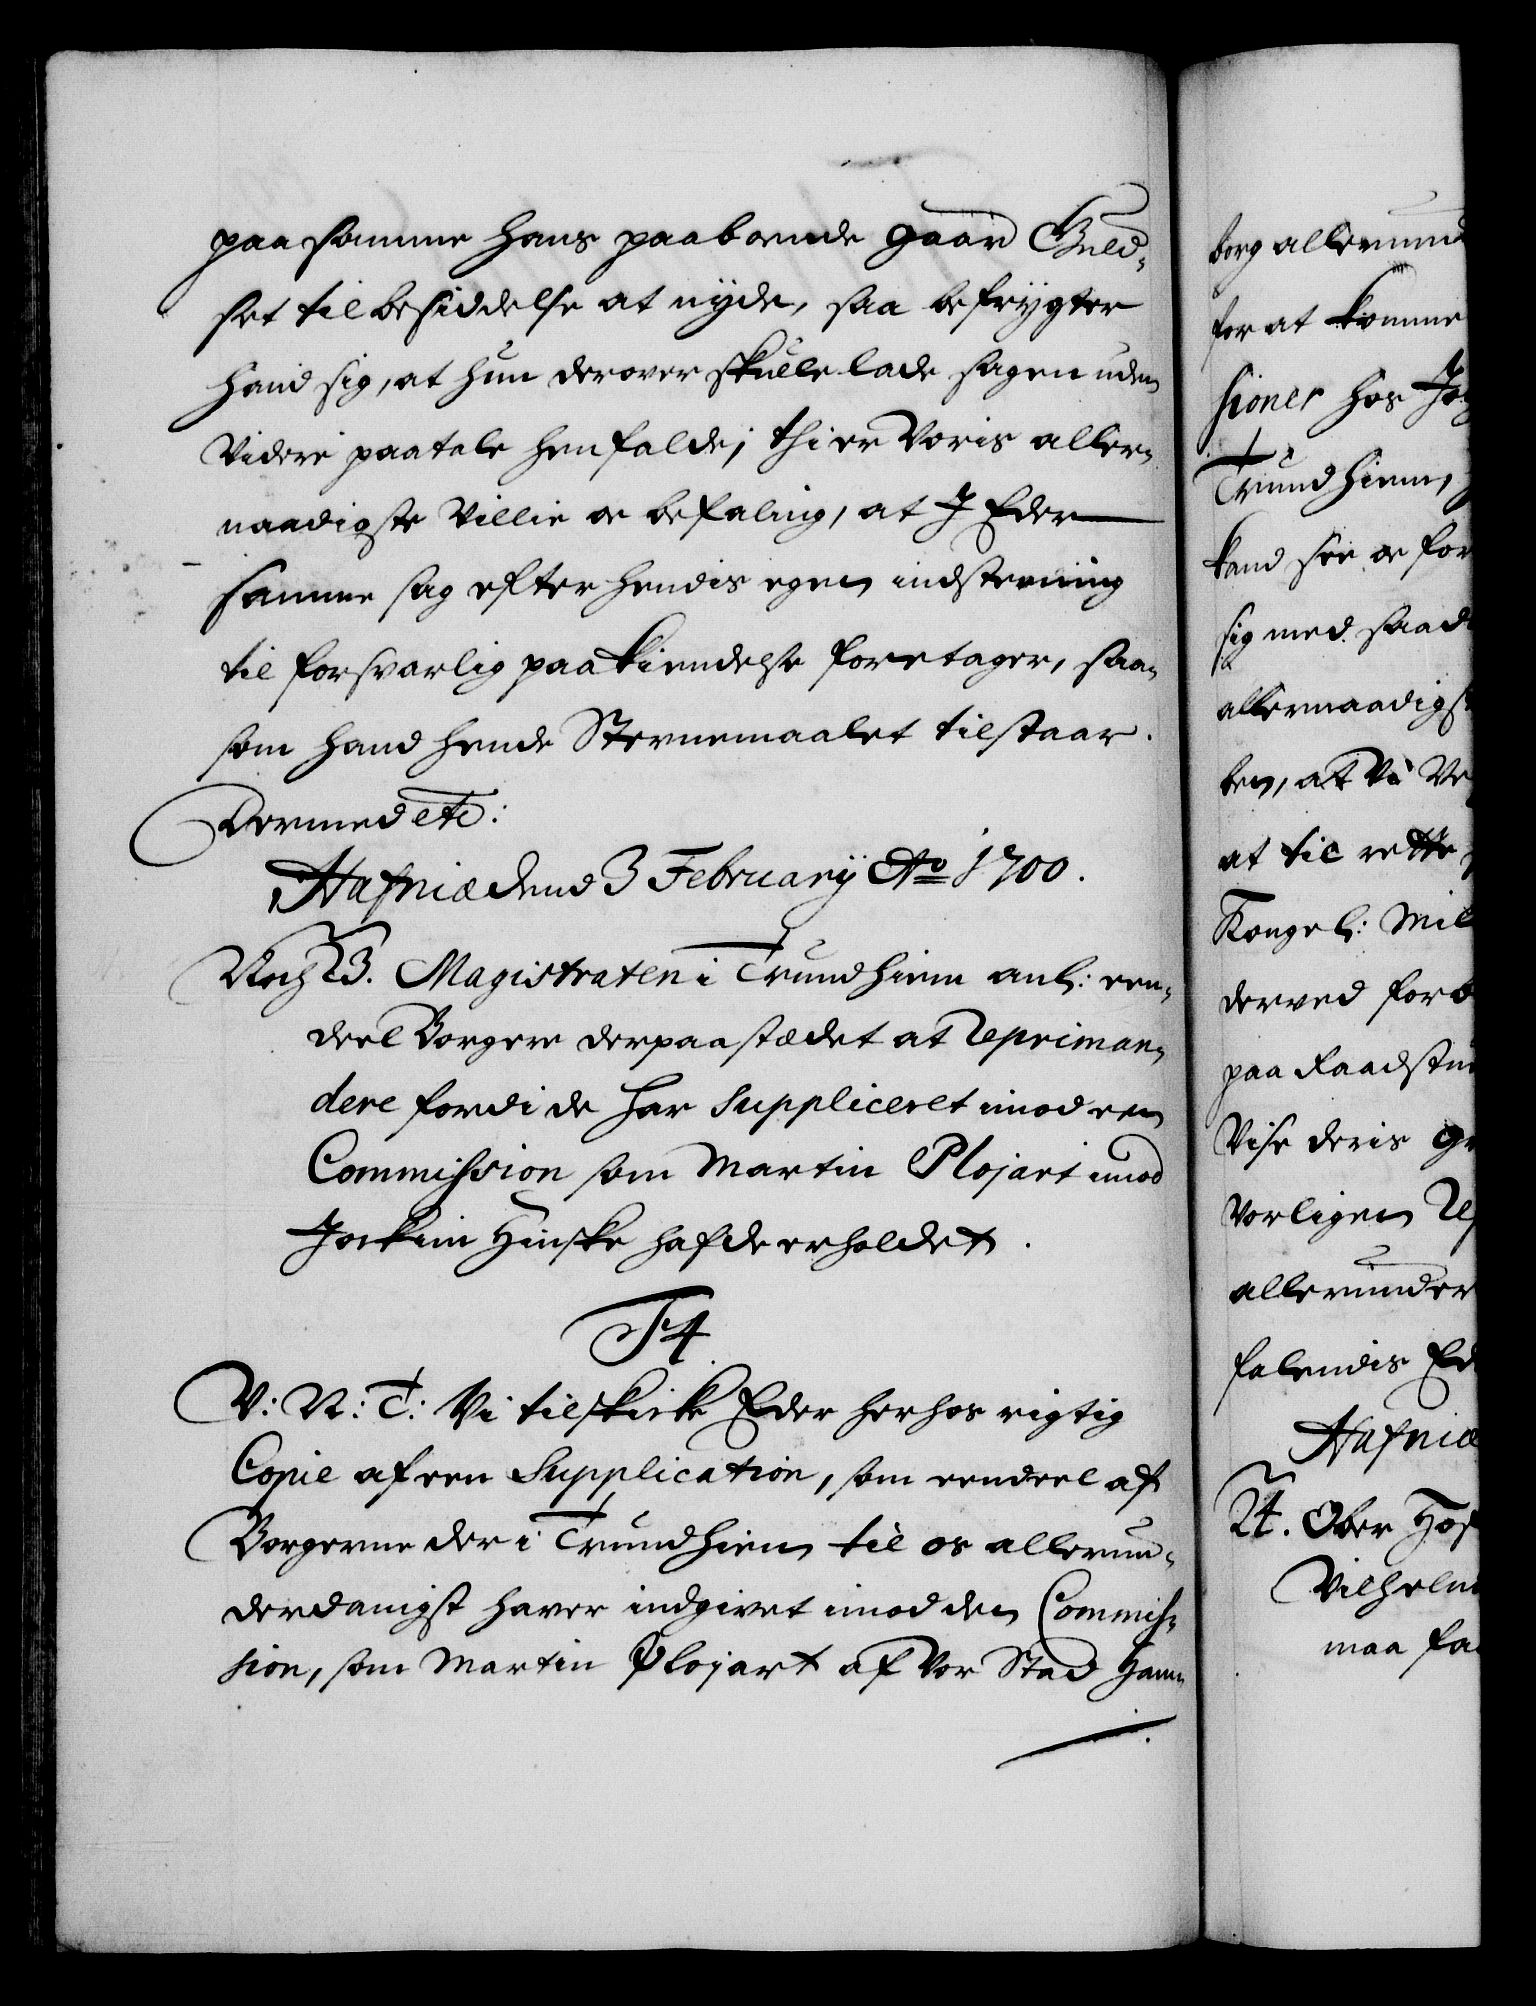 paa samme hans paaboende gaard Guld-
set til besiddelse at nyde, saa befrygter
hand sig, at hun derover skulle lade sagen uden
Videre paatale henfalde; thi er Voris aller-
naadigste Villie oc befaling, at J Eder
samme sag efter hendis egen indstevning
til forsvarlig paakiendelse foretager, saa-
som hand hende Stevnemaalet tilstaar.
Dermed etc:
Hafniæ dend 3 February Ao 1700.
23. Magistraten i Trundhiem anl: een-
deel Borgere derpaastædet at Repriman-
dere fordi de har Suppliceret imod een
Commission som Martin Plojart imod
Jockim Hinske hafde erholdet.
F4
V: N: T: Vi tilskicke Eder herhos rigtig
Copie af een Supplication, som eendeel af
Borgerne der i Trundhiem til os allerun-
derdanigst haver indgivet imod den Commis-
sion, som Martin Plojart af Vor Stad Ham-
borg allerund
for at komme
sioner hos Jo
Trundhiem,
kand see oc for
sig med saad
allernaadigst
ben, at Vi Ve
at til rette
Kongel: Mil
derved forb
paa Raadstu
Vise deris gr
Vorligen Re
allerunder
falendis Ed
Hafniæ
24. Ober Hof
Vilhelm
maa fa